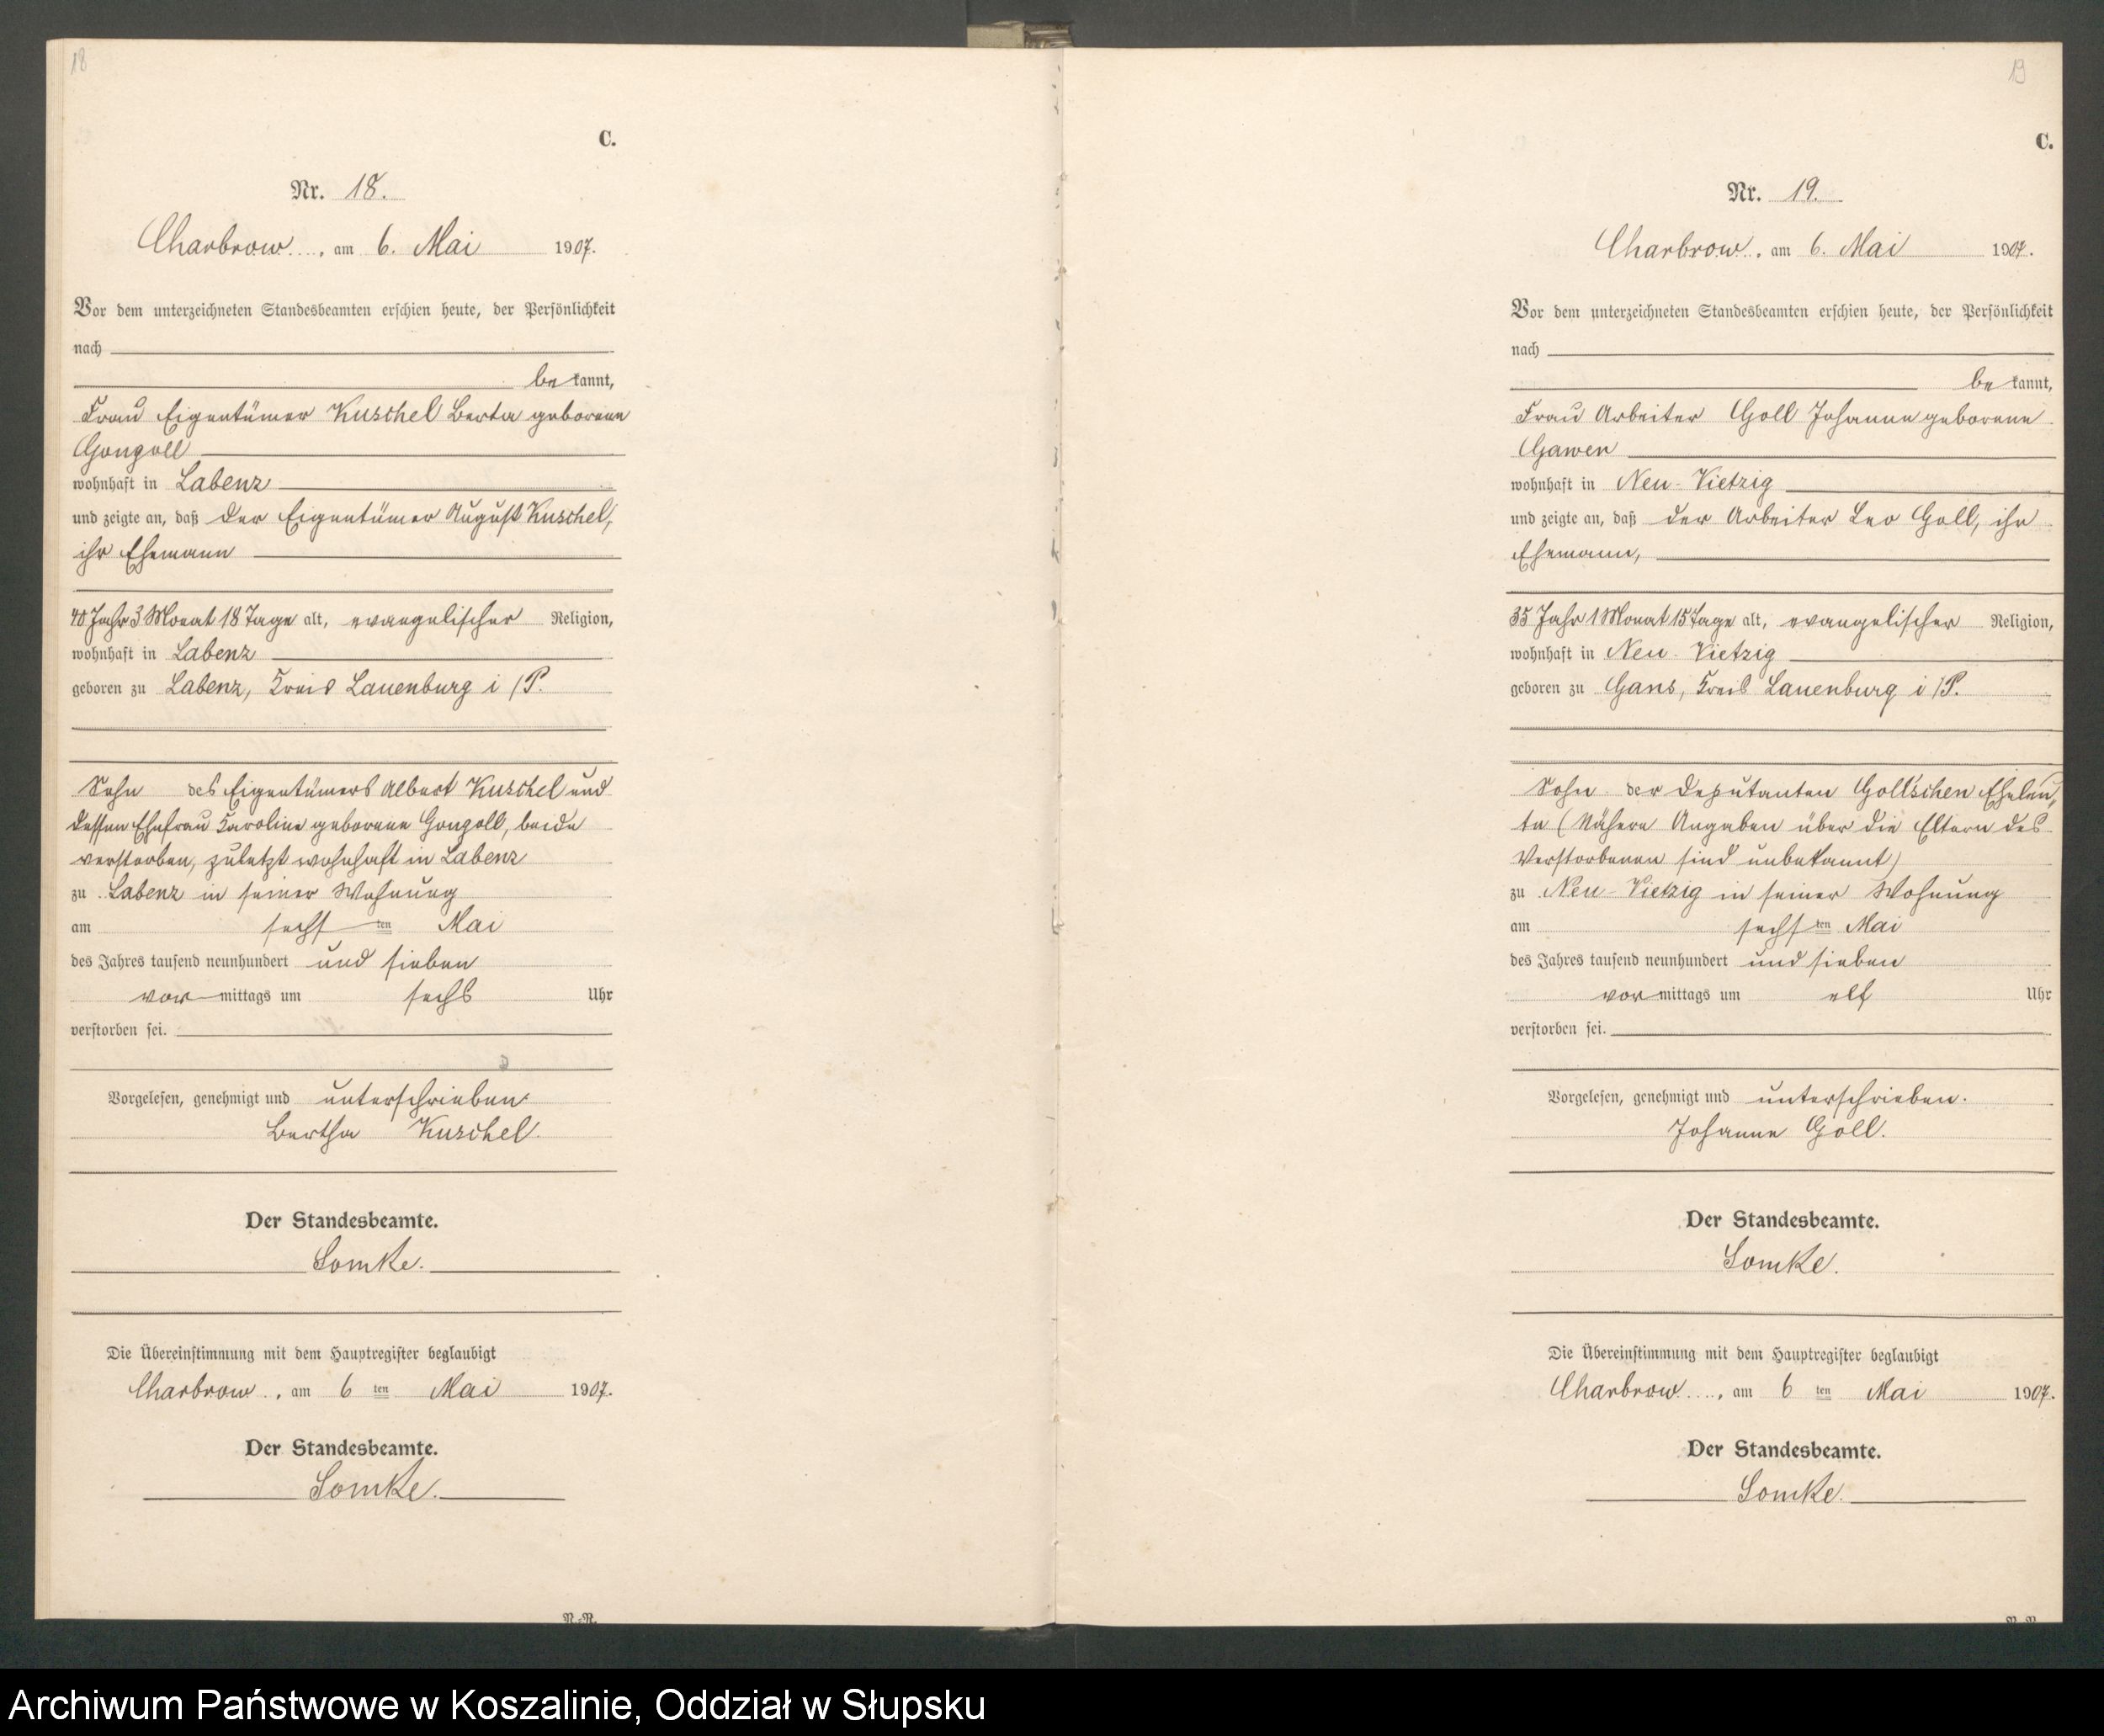 18
C.
Nr. 18.
Charbrow, am 6. Mai 1907.
Vor dem unterzeichneten Standesbeamten erschien heute, der Persönlichkeit
nach
be kannt,
Frau Eigentümer Kuschel Berta geborene
Gongoll
wohnhaft in Labenz
und zeigte an, daß der Eigentümer August Kuschel,
ihr Ehemann
40 Jahr 3 Monat 18 Tage alt, evangelischer Religion,
wohnhaft in Labenz
geboren zu Labenz, Kreis Lauenburg i/P.
Sohn des Eigentümers Albert Kuschel und
dessen Ehefrau Karoline geborene Gongoll, beide
verstorben, zuletzt wohnhaft in Labenz
zu Labenz in seiner Wohnung
am sechsten Mai
des Jahres tausend neunhundert und sieben
vormittags um sechs Uhr
verstorben sei.
Vorgelesen, genehmigt und unterschrieben.
Bertha Kuschel.
Der Standesbeamte.
Somke.
Die Übereinstimmung mit dem Hauptregister beglaubigt
Charbrow, am 6 ten Mai 1907.
Der Standesbeamte.
Somke.
19
C.
Nr. 19.
Charbrow, am 6. Mai 1907.
Vor dem unterzeichneten Standesbeamten erschien heute, der Persönlichkeit
nach
be kannt,
Frau Arbeiter Goll Johanne geborene
Gawer
wohnhaft in Neu-Vietzig
und zeigte an, daß der Arbeiter Leo Goll, ihr
Ehemann,
35 Jahr 1 Monat 15 Tage alt, evangelischer Religion,
wohnhaft in Neu-Vietzig
geboren zu Gans, Kreis Lauenburg i/P.
Sohn der Deputanten Goll'schen Eheleu-
te (Nähere Angaben über die Eltern des
Verstorbenen sind unbekannt)
zu Neu-Vietzig in seiner Wohnung
am sechsten Mai
des Jahres tausend neunhundert und sieben
vormittags um elf Uhr
verstorben sei.
Vorgelesen, genehmigt und unterschrieben.
Johanne Goll.
Der Standesbeamte.
Somke.
Die Übereinstimmung mit dem Hauptregister beglaubigt
Charbrow, am 6 ten Mai 1907.
Der Standesbeamte.
Somke.
Archiwum Państwowe w Koszalinie, Oddział w Słupsku